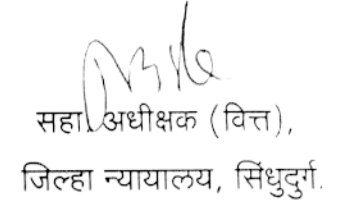 सहा. अधीक्षक (वित्त),
जिल्हा न्यायालय, सिंधुदुर्ग.